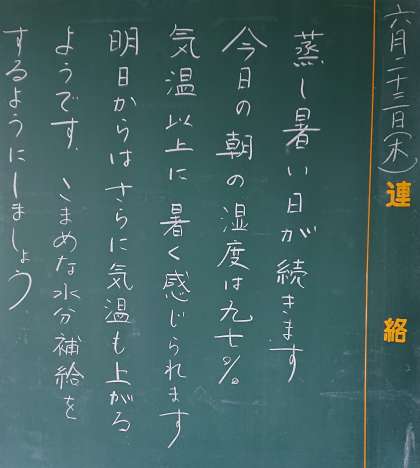 六月二十三日(木)
連絡
蒸し暑い日が続きます
今日の朝の湿度は九七%
気温以上に暑く感じられます
明日からはさらに気温も上がる
ようです。こまめな水分補給を
するようにしましょう